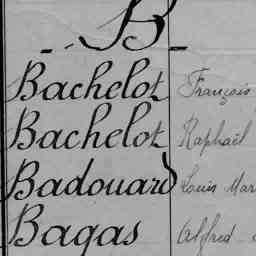 B
Bachelot François
Bachelot Raphaël
Badouard Louis Mar
Bagas Alfred